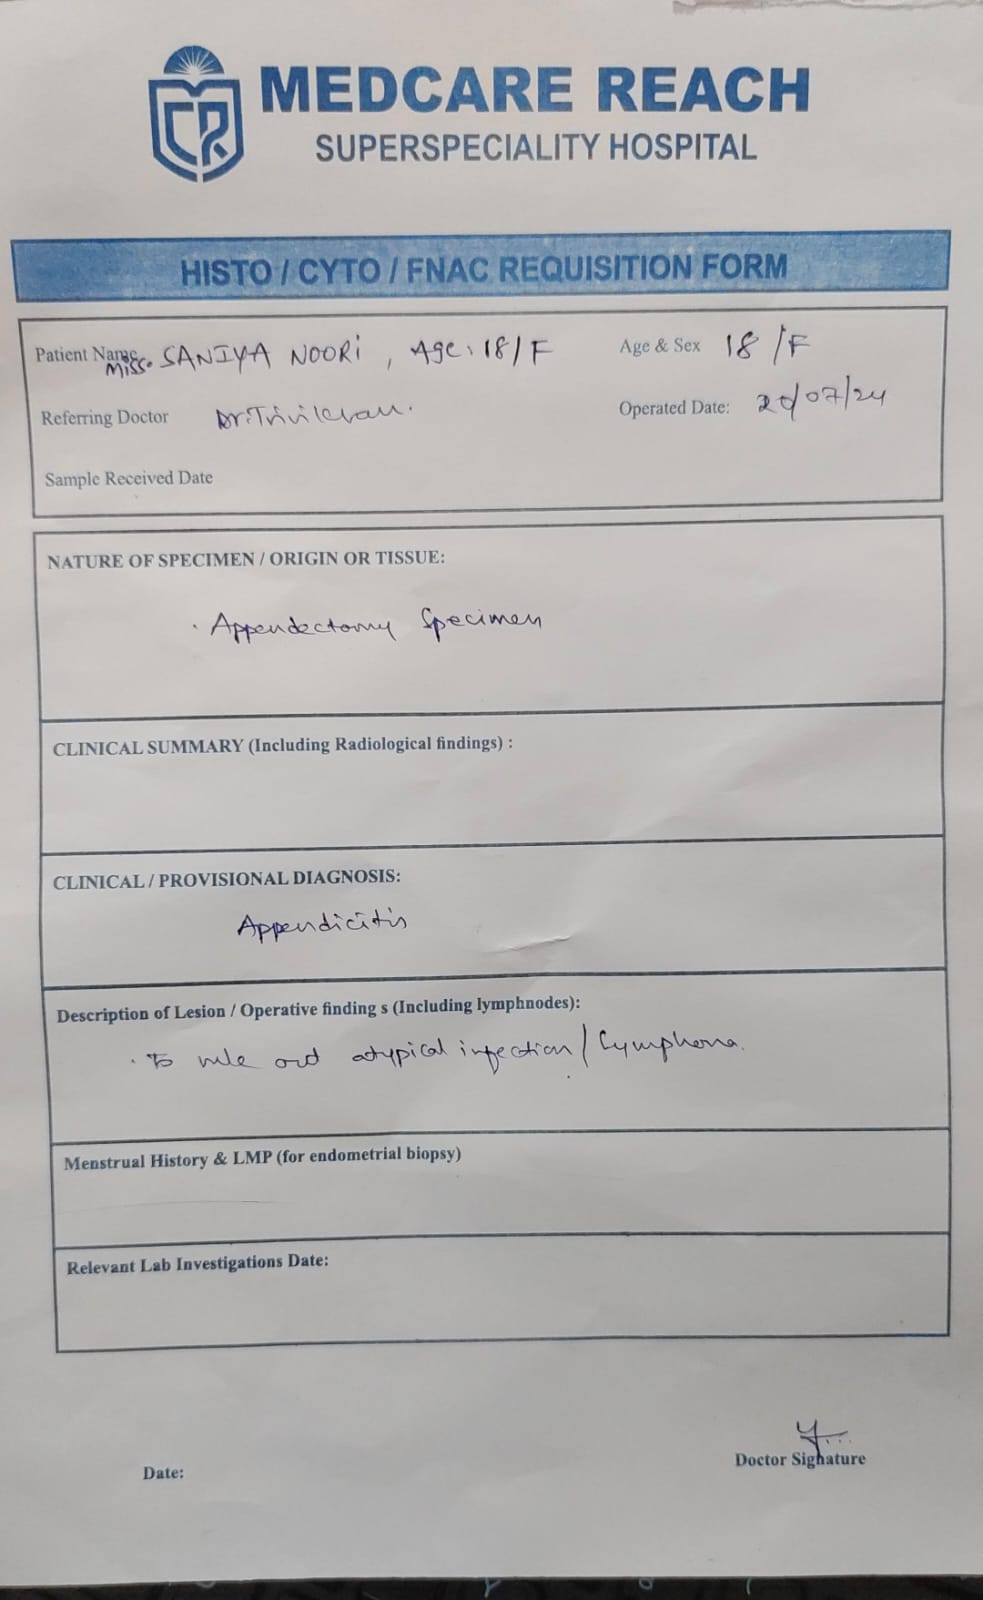 MEDCARE REACH
SUPERSPECIALITY HOSPITAL
HISTO / CYTO / FNAC REQUISITION FORM
Patient Name Miss. SANIYA NOORi, Age: 18/F Age & Sex 18/F
Referring Doctor Operated Date: /07/24
Sample Received Date
NATURE OF SPECIMEN / ORIGIN OR TISSUE:
Appendectomy Specimen
CLINICAL SUMMARY (Including Radiological findings) :
CLINICAL / PROVISIONAL DIAGNOSIS:
Appendicitis
Description of Lesion / Operative finding s (Including lymphnodes):
To rule out atypical infection / Lymphoma.
Menstrual History & LMP (for endometrial biopsy)
Relevant Lab Investigations Date:
Doctor Signature
Date: